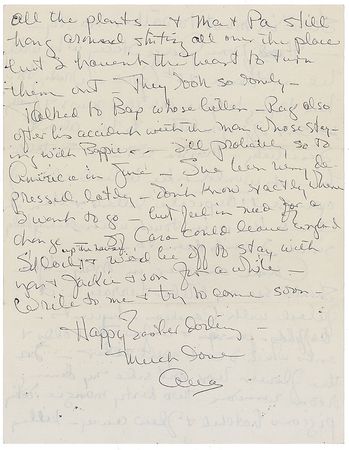 all the plants — & Ma & Pa still
hang around shitting all over the place
but I haven't the heart to turn
them out — They look so lovely —
Talked to Bap whose better — Ray also
after his accident with the man whose stay-
ing with Bappie — I'll probably go to
America in June — I've been very de-
pressed lately — don't know exactly where
I want to go — but feel in need for a
change — If Cara could leave England
I'd and we'd be off to stay with
you & Jackie & son for a while —
Write to me & try to come soon —
Happy Easter darling —
Much love